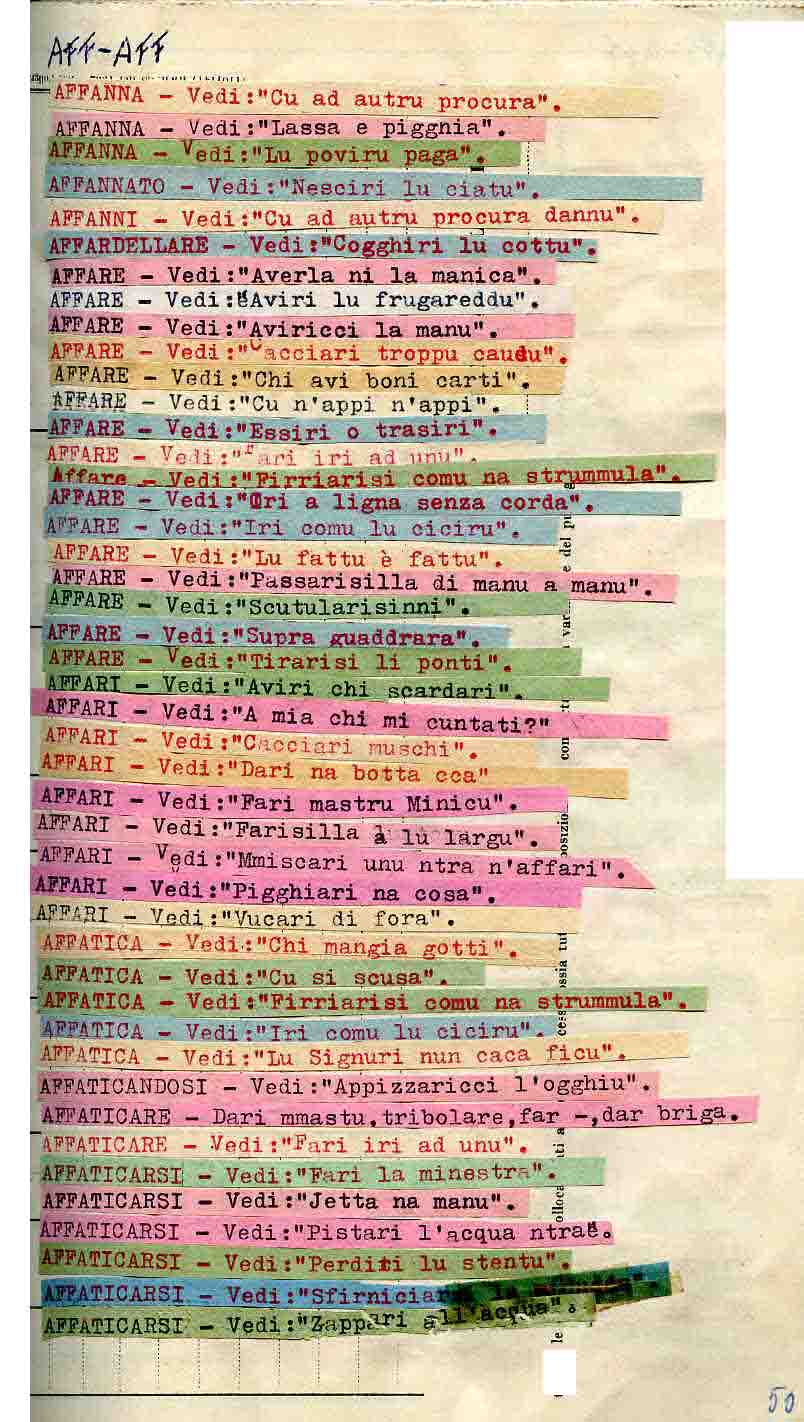 AFF-AFF
AFFANNA - Vedi:"Cu ad autru procura".
AFFANNA - Vedi:"Lassa e pigghia".
AFFANNA - Vedi:"Lu poviru paga".
AFFANNATO - Vedi:"Nesciri lu ciatu".
AFFANNI - Vedi:"Cu ad autru procura dannu".
AFFARDELLARE - Vedi:"Cogghiri lu cottu".
AFFARE - Vedi:"Averla ni la manica".
AFFARE - Vedi:"Aviri lu frugareddu".
AFFARE - Vedi:"Aviricci la manu".
AFFARE - Vedi:"Cacciari troppu caudu".
AFFARE - Vedi:"Chi avi boni carti".
AFFARE - Vedi:"Cu n'appi n'appi".
AFFARE - Vedi:"Essiri o trasiri".
AFFARE - Vedi:"Fari iri ad unu".
Affare - Vedi:"Firriarisi comu na strummula".
AFFARE - Vedi:"Iri a ligna senza corda".
AFFARE - Vedi:"Iri comu lu ciciru".
AFFARE - Vedi:"Lu fattu è fattu".
AFFARE - Vedi:"Passarisilla di manu a manu".
AFFARE - Vedi:"Scutularisinni".
AFFARE - Vedi:"Supra guaddrara".
AFFARE - Vedi:"Tirarisi li ponti".
AFFARI - Vedi:"Aviri chi scardari".
AFFARI - Vedi:"A mia chi mi cuntati?"
AFFARI - Vedi:"Cacciari muschi".
AFFARI - Vedi:"Dari na botta cca"
AFFARI - Vedi:"Fari mastru Minicu".
AFFARI - Vedi:"Farisilla a lu largu".
AFFARI - Vedi:"Mmiscari unu ntra n'affari".
AFFARI - Vedi:"Pigghiari na cosa".
AFFARI - Vedi:"Vucari di fora".
AFFATICA - Vedi:"Chi mangia gotti".
AFFATICA - Vedi:"Cu si scusa".
AFFATICA - Vedi:"Firriarisi comu na strummula".
AFFATICA - Vedi:"Iri comu lu ciciru".
AFFATICA - Vedi:"Lu Signuri nun caca ficu".
AFFATICANDOSI - Vedi:"Appizzaricci l'ogghiu".
AFFATICARE - Dari mmastu,tribolare,far -,dar briga.
AFFATICARE - Vedi:"Fari iri ad unu".
AFFATICARSI - Vedi:"Fari la minestra".
AFFATICARSI - Vedi:"Jetta na manu".
AFFATICARSI - Vedi:"Pistari l'acqua ntra".
AFFATICARSI - Vedi:"Perditi lu stentu".
AFFATICARSI - Vedi:"Sfirniciar
AFFATICARSI - Vedi:"Zappari all'acqua".
50